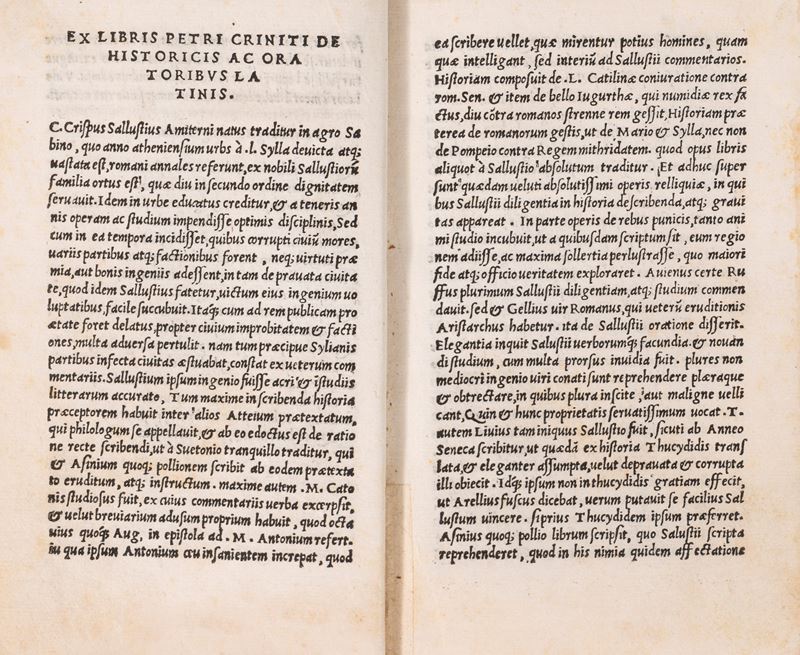 EX LIBRIS PETRI CRINITI DE
HISTORICIS AC ORA
TORIBVS LA
TINIS.
C. Crispus Sallustius Amiterni natus traditur in agro Sa
bino, quo anno atheniensium urbs à .l. Sylla deuicta atq;
uastata est, romani annales referunt, ex nobili Sallustiorū
familia ortus est, quæ diu in secundo ordine dignitatem
seruauit. Idem in urbe educatus creditur, & a teneris an
nis operam ac studium impendisse optimis disciplinis, Sed
cum in ea tempora incidisset, quibus corrupti ciuiū mores,
uariis partibus atq; factionibus forent, neq; uirtuti præ
mia, aut bonis ingeniis adessent, in tam deprauata ciuita
te, quod idem Sallustius fatetur, uictum eius ingenium uo
luptatibus, facile succubuit. Itaq; cum ad rem publicam pro
ætate foret delatus, propter ciuium improbitatem & facti
ones, multa aduersa pertulit. nam tum præcipue Sylianis
partibus infecta ciuitas æstuabat, constat ex ueterum com
mentariis. Sallustium ipsum ingenio fuisse acri & ī studiis
litterarum accurato, Tum maxime in scribenda historia
præceptorem habuit inter alios Atteium prætextatum,
qui philologum se appellauit, & ab eo edoctus est de ratio
ne recte scribendi, ut à Suetonio tranquillo traditur, qui
& Asinium quoq; pollionem scribit ab eodem prætexta
to eruditum, atq; instructum. maxime autem .M. Cato
nis studiosus fuit, ex cuius commentariis uerba excerpsit,
& uelut breuiarium ad usum proprium habuit, quod octa
uius quoq; Aug. in epistola ad .M. Antonium refert.
in qua ipsum Antonium ceu insanientem increpat, quod
ea scribere uellet, quæ mirentur potius homines, quam
quæ intelligant, sed interiū ad Sallustii commentarios.
Historiam composuit de .L. Catilinæ coniuratione contra
rom. Sen. & item de bello Iugurthæ, qui numidiæ rex fa
ctus, diu cōtra romanos strenne rem gessit, Historiam præ
terea de romanorum gestis, ut de Mario & Sylla, nec non
de Pompeio contra Regem mithridatem. quod opus libris
aliquot à Sallustio absolutum traditur. Et adhuc super
sunt quædam ueluti absolutissimi operis relliquiæ, in qui
bus Sallustii diligentia in historia describenda, atq; graui
tas appareat. In parte operis de rebus punicis, tanto ani
mi studio incubuit, ut a quibusdam scriptum sit, eum regio
nem adiisse, ac maxima sollertia perlustrasse, quo maiori
fide atq; officio ueritatem exploraret. Auienus certe Ru
ffus plurimum Sallustii diligentiam, atq; studium commen
dauit. sed & Gellius uir Romanus, qui ueterū eruditionis
Aristarchus habetur. ita de Sallustii oratione disserit.
Elegantia inquit Salustii uerborumq; facundia. & nouan
di studium, cum multa prorsus inuidia fuit. plures non
mediocri ingenio uiri conati sunt reprehendere plæraque
& obtrectare, in quibus plura inscite, aut maligne uelli
cant, Quin & hunc proprietatis seruatissimum uocat. T.
autem Liuius tam iniquus Sallustio fuit, sicuti ab Anneo
Seneca scribitur, ut quædā ex historia Thucydidis trans
lata, & eleganter assumpta, uelut deprauata & corrupta
illi obiecit. Idq; ipsum non in thucydidis gratiam effecit,
ut Arellius fuscus dicebat, uerum putauit se facilius Sal
lustum uincere. si prius Thucydidem ipsum præferret.
Asinius quoq; pollio librum scripsit, quo Salustii scripta
reprehenderet, quod in his nimia quidem affectatione